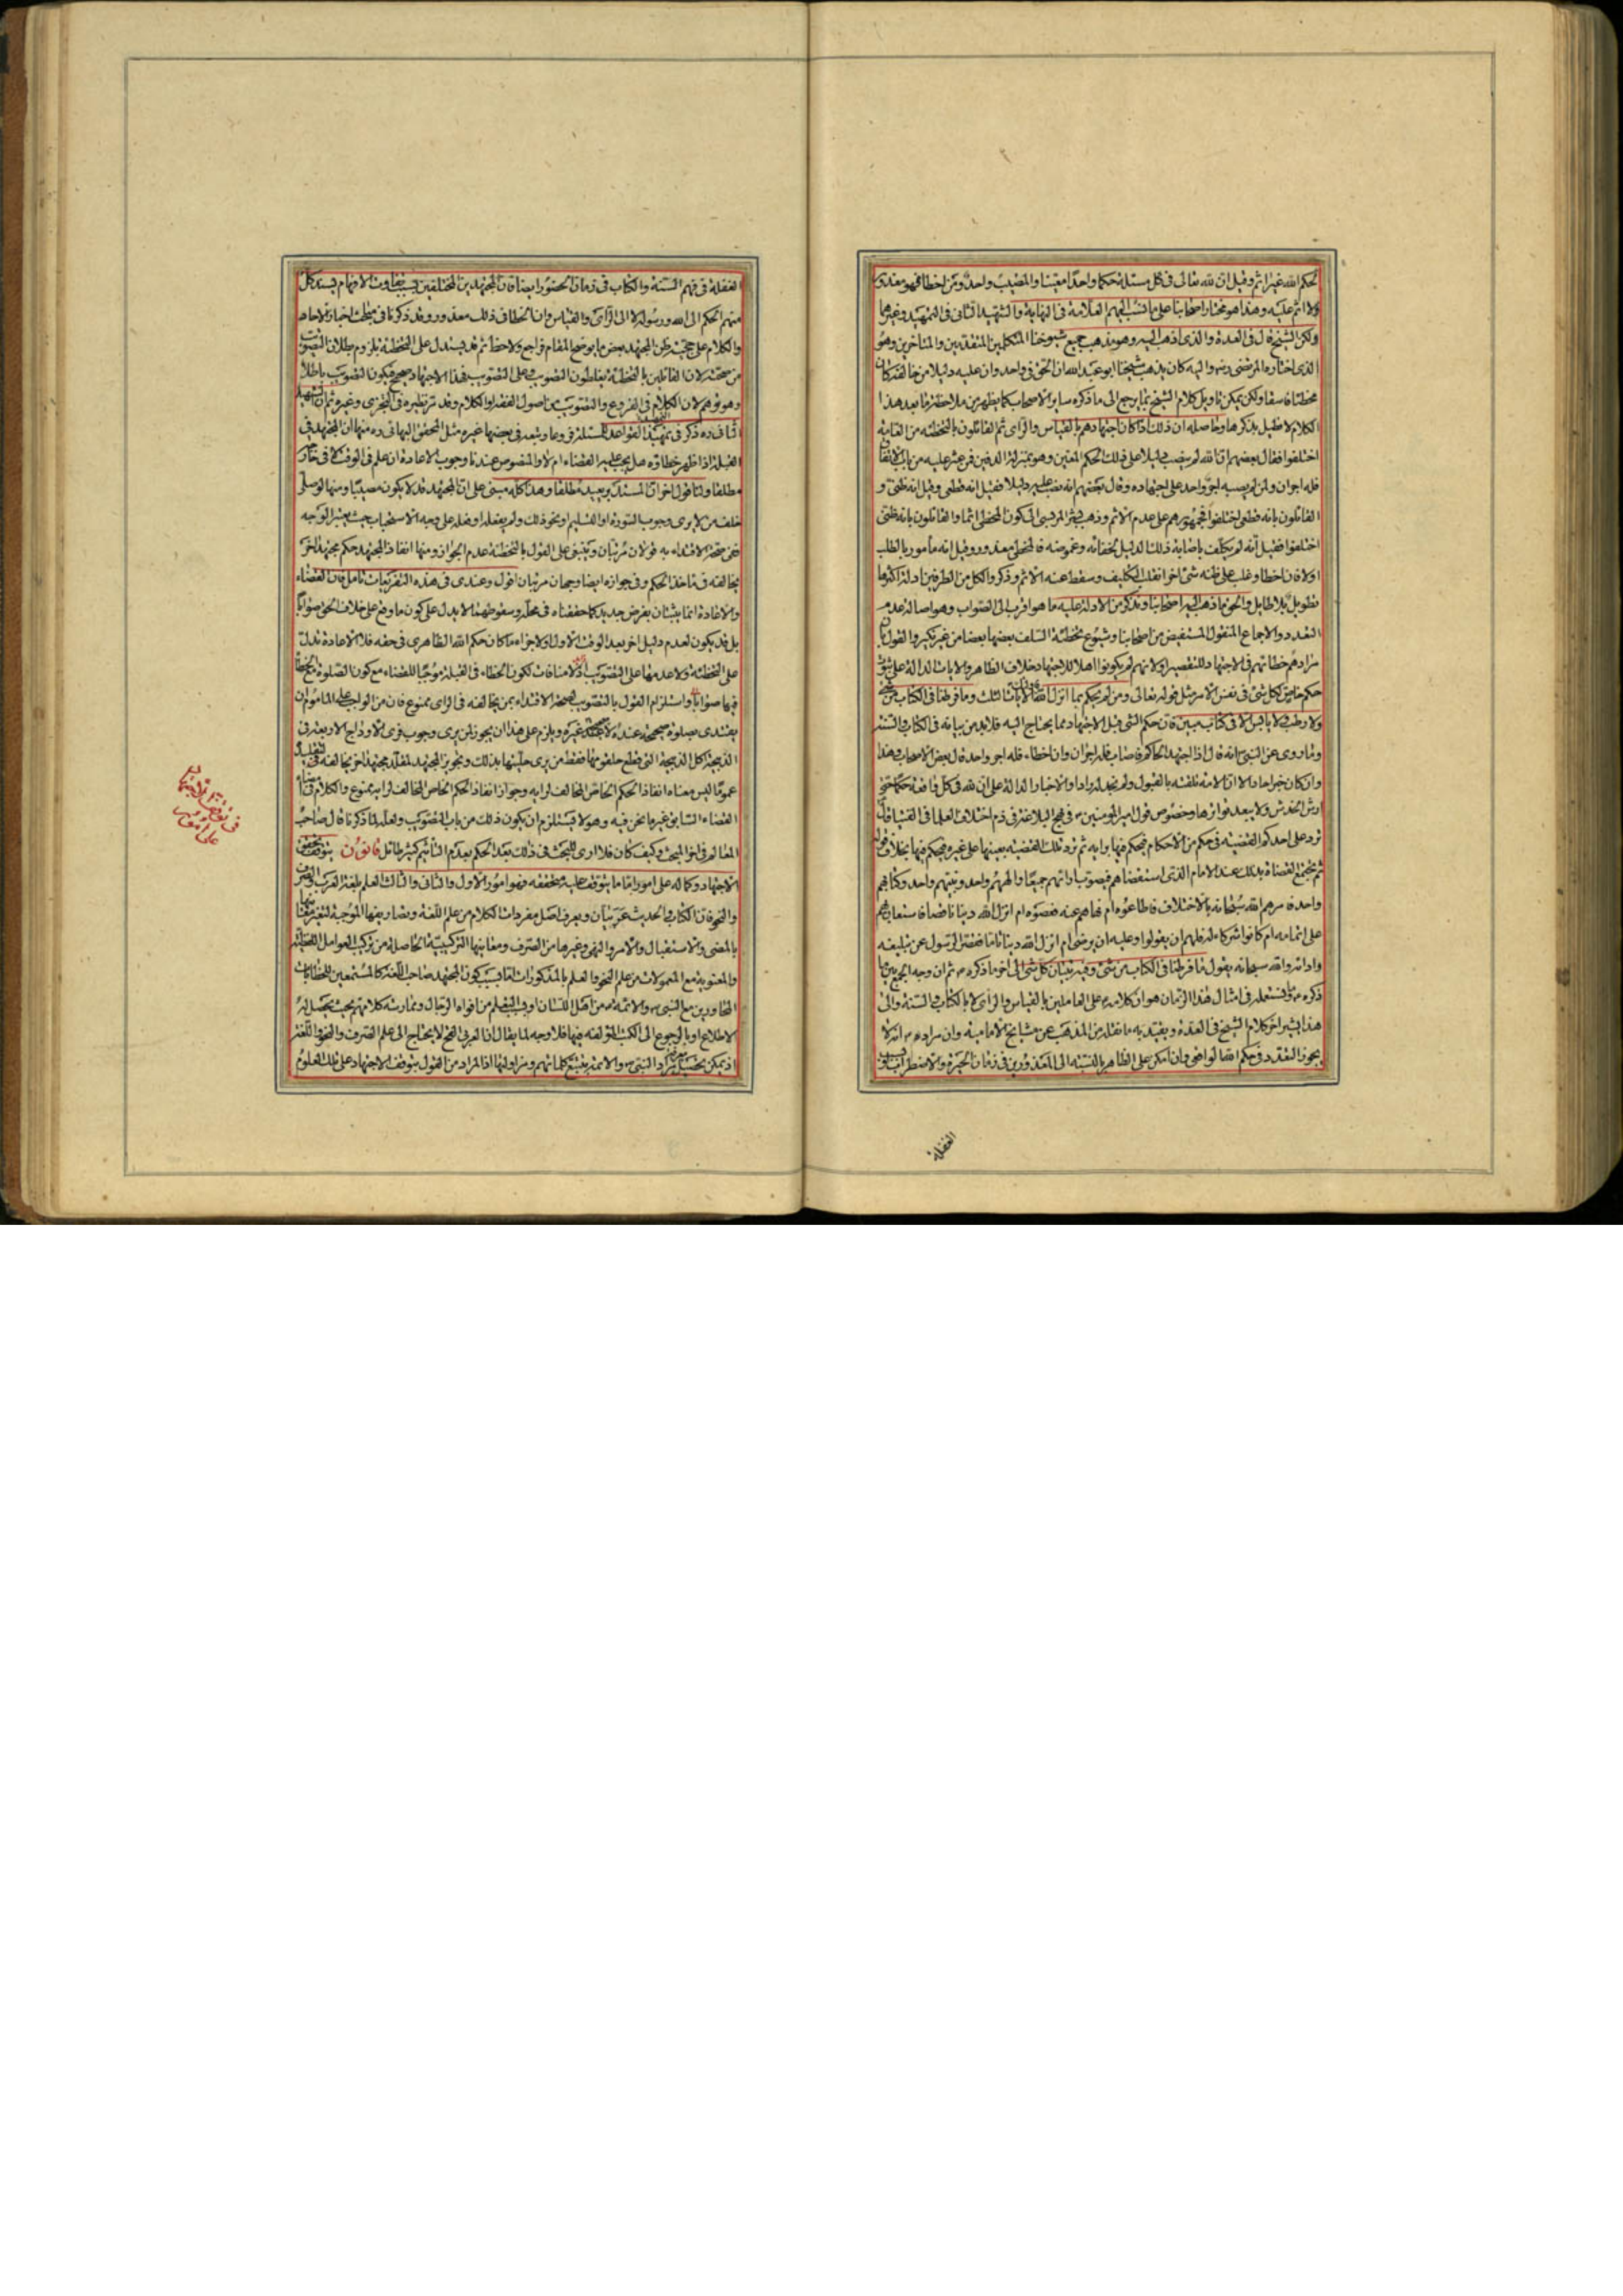 لحكم الله غير اثم وقيل ان لله تعالى فى كل مسئلة حكما واحدا معينا والمصيب واحد ومن اخطا فهو معذور
ولا اثم عليه وهذا هو مختار اصحابنا على ما نسب اليهم العلامة فى النهاية والشهيد الثانى فى التمهيد وغيرهما
ولكن الشيخ قال فى العدة والذى اذهب اليه وهو مذهب جميع شيوخنا المتكلمين المتقدمين والمتاخرين وهو
الذى اختاره المرتضى ره واليه كان يذهب شيخنا ابو عبد الله ان الحق فى واحد وان عليه دليلا من خالفه كان
مخطئا فاسقا ولكن يمكن تاويل كلام الشيخ بما يرجع الى ما ذكره ساير الاصحاب كما يظهر من ملاحظة ما بعد هذا
الكلام لا نطيل بذكرها وحاصله ان ذلك اذا كان اجتهادهم بالقياس والراى ثم القائلون بالتخطئة من العامة
اختلفوا فقال بعضهم ان الله لم ينصب دليلا على ذلك الحكم المعين وهو بمنزلة الدفين فمن عثر عليه من باب الاتفاق
فله اجران ومن لم يصبه اجر واحد على اجتهاده وقال بعضهم انه نصب عليه دليلا فقيل انه قطعى وقيل انه ظنى و
القائلون بانه قطعى اختلفوا فجمهورهم على عدم الاثم وذهب بشر المريسى الى كون المخطى اثما والقائلون بانه ظنى
اختلفوا فقيل انه لم يكلف باصابة ذلك الدليل لخفائه وغموضه فالمخطى معذور وقيل انه مامور بالطلب
اولا فان اخطا وغلب على ظنه شئ اخر انقلب التكليف وسقط عنه الاثم وذكروا لكل من الطرفين ادلة اكثرها
تطويل بلا طايل والحق ما ذهب اليه اصحابنا ونذكر من الادلة عليه ما هو اقرب الى الصواب وهو اصالة عدم
التعدد والاجماع المنقول المستفيض من اصحابنا وشيوع تخطئة السلف بعضها بعضا من غير نكير والقول بان
مرادهم خطائهم فى الاجتهاد للتقصير او لانهم لم يكونوا اهلا للاجتهاد خلاف الظاهر والايات الدالة على ثبوت
حكم خاص لكل شئ فى نفس الامر مثل قوله تعالى ومن لم يحكم بما انزل الله الايات الثلث وما فرطنا فى الكتاب من شئ
ولا رطب ولا يابس الا فى كتاب مبين فان حكم الشئ قبل الاجتهاد مما يحتاج اليه فلا بد من بيانه فى الكتاب والسنة
وما روى عن النبى ص انه قال اذا اجتهد الحاكم فاصاب فله اجران وان اخطاء فله اجر واحد قال بعض الاصحاب وهذا
وان كان خبرا حادا الا ان الامة تلقته بالقبول ولم نجد له رادا والاخبار الدالة على ان لله فى كل واقعة حكما حتى
ارش الخدش ولا يبعد تواترها وخصوص قول امير المؤمنين ع فى نهج البلاغة فى ذم اختلاف العلما فى الفتيا قال
ترد على احدكم القضية فى حكم من الاحكام فيحكم فيها برايه ثم ترد تلك القضية بعينها على غيره فيحكم فيها بخلاف قوله
ثم يجتمع القضاة بذلك عند الامام الذى استقضاهم فيصوب اراءهم جميعا والههم واحد ونبيهم واحد وكتابهم
واحد فامرهم الله سبحانه بالاختلاف فاطاعوه ام نهاهم عنه فعصوه ام انزل الله دينا ناقصا فاستعان بهم
على اتمامه ام كانوا شركاء له فلهم ان يقولوا وعليه ان يرضى ام انزل الله دينا تاما فقصر الرسول عن تبليغه
وادائه والله سبحانه يقول ما فرطنا فى الكتاب من شئ وفيه تبيان كل شئ الى اخر ما ذكره ع ثم ان وجه الجمع بين ما
ذكره ع وما نستعمله فى امثال هذا الزمان هو ان كلامه ع على العاملين بالقياس والراى لا بالكتاب والسنة والى
هذا يشير اخر كلام الشيخ فى العدة ويقيد به ما نقله من المذهب عن مشايخ الامامية وان مراده ع انه لا
يجوز التعدد فى حكم الله الواقعى وان امكن على الظاهر بالنسبة الى المعذورين فى زمان الحيرة والاضطراب بسبب
الغفلة
الغفلة فى فهم السنة والكتاب فى زمان الحضور ايضا فان المجتهدين المختلفين بسبب تفاوت الافهام يسند كل
منهم الحكم الى الله ورسوله لا الى الراى والقياس وان اخطا فى ذلك معذور وقد ذكرنا فى مبحث اخبار الاحاد
والكلام على حجية ظن المجتهد بعض ما يوضح المقام فراجع ولاحظ ثم قد يستدل على التخطئة بلزوم بطلان التصويب
من صحته لان القائلين بالتخطئة يغلطون التصويب وعلى التصويب فهذا الاجتهاد صحيح فيكون التصويب باطلا
وهو توهم لان الكلام فى الفروع والتصويب من اصول الفقه او الكلام وقد مر نظيره فى التجزى وغيره ثم ان الشهيد
الثانى ره ذكر فى تمهيد القواعد للمسئلة فروعا وتبعه فى بعضها غيره مثل المحقق البهائى ره منها ان المجتهد فى
القبلة اذا ظهر خطاؤه هل يجب عليه القضاء ام لا والمنصوص عندنا وجوب الاعادة ان علم فى الوقت لا فى خارجه
مطلقا ولنا قول اخر ان المستدبر يعيد مطلقا وهذا كله مبنى على ان المجتهد قد لا يكون مصيبا ومنها لو صلى
خلف من لا يرى وجوب السورة او التسليم او نحو ذلك ولم يفعله او فعله على وجه الاستحباب حيث يعتبر الوجه
ففى صحة الاقتداء به قولان مرتبان وينبغى على القول بالتخطئة عدم الجواز ومنها انفاذ المجتهد حكم مجتهد اخر
يخالفه فى ماخذ الحكم وفى جوازه ايضا وجهان مرتبان اقول وعندى فى هذه التفريعات تامل فان القضاء
والاعادة انما يثبتان بفرض جديد كما حققناه فى محله وسقوطهما لا يدل على كون ما وقع على خلاف الحق صوابا
بل قد يكون لعدم دليل اخر بعد الوقت الاول والاجزاء ما كان حكم الله الظاهرى فى حقه فلا الاعادة تدل
على التخطئة ولا عدمها على التصويب اذ لا منافات لكون الخطاء فى القبلة موجبا للقضاء مع كون الصلوة مع الخطا
فيها صوابا واستلزام القول بالتصويب لصحة الاقتداء بمن يخالفه فى الراى ممنوع فان من الواجب على الماموم ان
يقتدى بصلوة صحيحة عنده لا صحيحة عند غيره ويلزم على هذا ان يجوز لمن يرى وجوب فرى الاوداج الاربعة فى
الذبيحة اكل الذبيحة التى قطع حلقومها فقط من يرى حليتها بذلك وتجويز المجتهد لمقلد مجتهد اخر يخالفه فى التقليد
عموما ليس معناه انفاذ الحكم الخاص المخالف لرايه وجواز انفاذ الحكم الخاص المخالف لرايه ممنوع والكلام فى امضاء
القضاء السابق غير ما نحن فيه وهو لا يستلزم ان يكون ذلك من باب التصويب ولعله لما ذكرنا قال صاحب
المعالم فى اخر المبحث وكيف كان فلا ارى للبحث فى ذلك بعد الحكم بعدم التاثيم كثير طائل قانون يتوقف تحقق
الاجتهاد وكماله على امور اما ما يتوقف عليه تحققه فهو امور الاول والثانى والثالث العلم بلغة العرب والصرف
والنحو فان الكتاب والحديث عربيان ويعرف اصل مفردات الكلام من علم اللغة وتصاريفها الموجبة لتغير معانيها
بالمضى والاستقبال والامر والنهى وغيرها من الصرف ومعانيها التركيبية الحاصلة من تركيب العوامل اللفظية
والمعنوية مع المعمولات من علم النحو والعلم بالمذكورات اما بسبب كون المجتهد صاحب اللغة كالمستمعين للخطابات
المحاورين مع النبى ص والائمة ع من اهل اللسان او بالتعلم من افواه الرجال وممارسة كلامهم بحيث يحصل له
الاطلاع او بالرجوع الى الكتب المؤلفة فيها فلا وجه لما يقال ان العربى القح لا يحتاج الى علم الصرف والنحو واللغة
اذ يمكن تحصيل مراد النبى ص والائمة بتتبع كلماتهم ومزاولتها اذ المراد من القول بتوقف الاجتهاد على تلك العلوم
فى توقف الاجتهاد
على امور